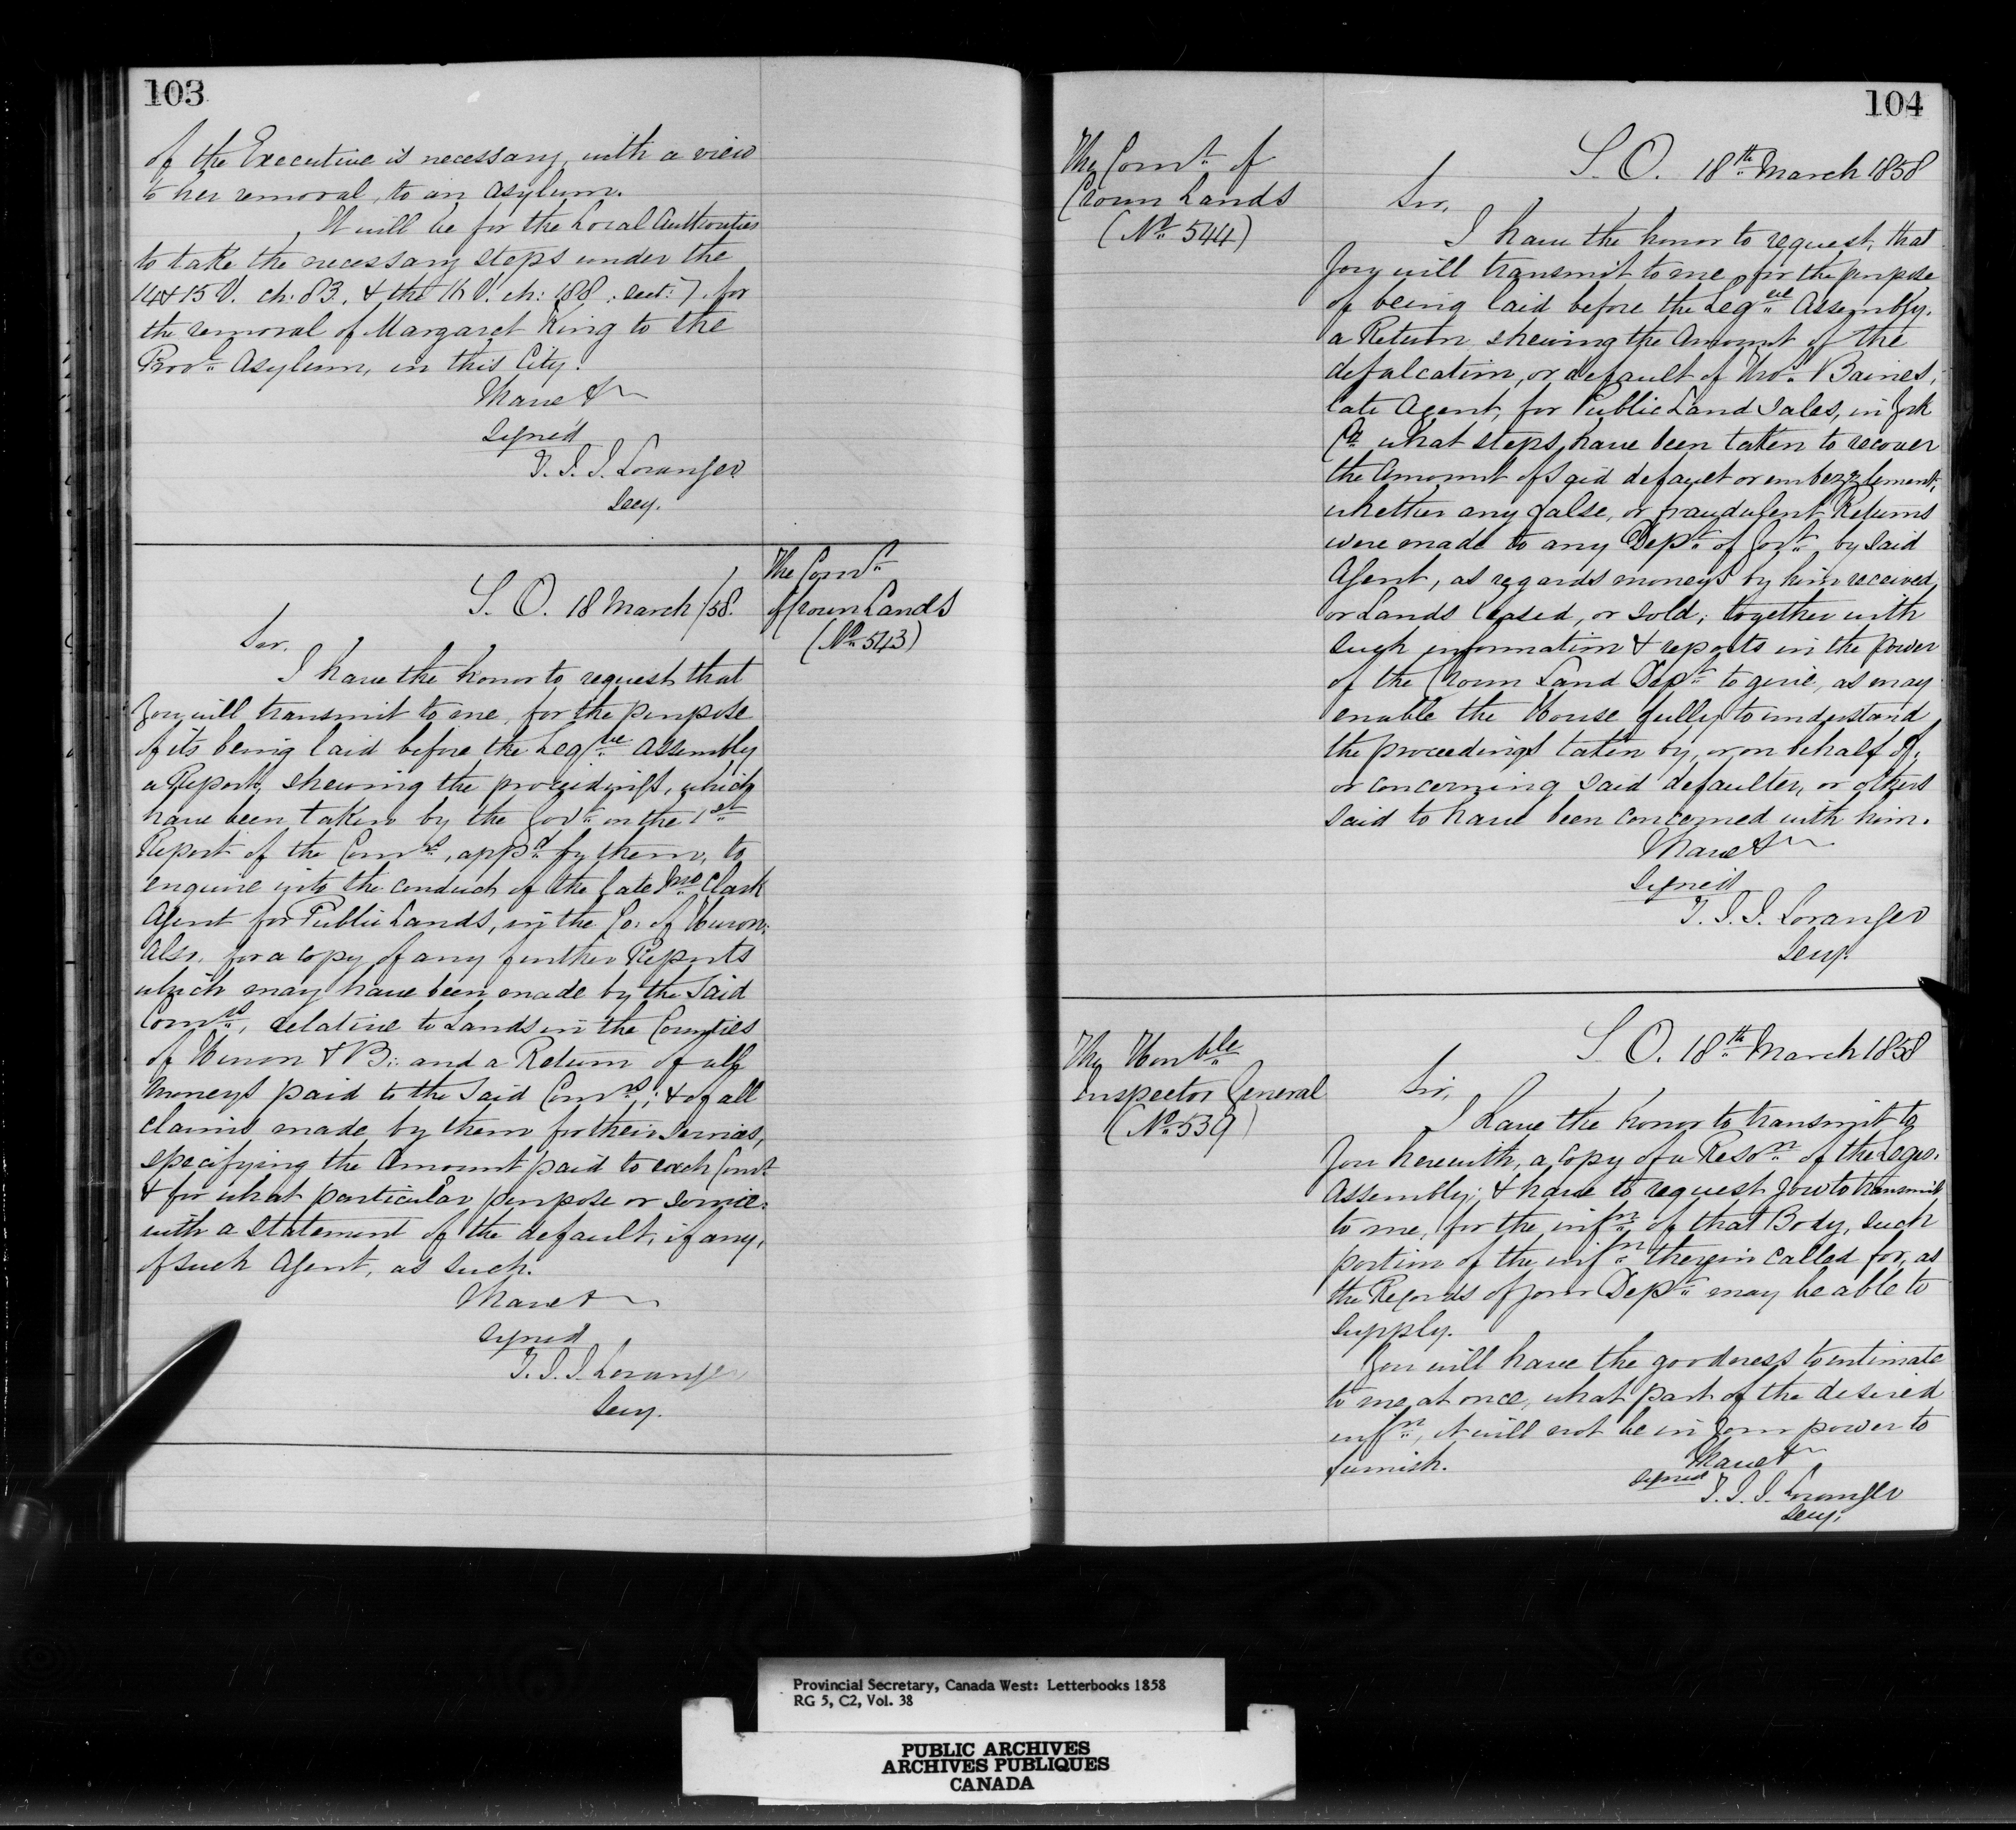 103
of the Executive is necessary, with a view
to her removal, to an asylum.
It will be for the Local Authorities
to take the necessary steps under the
14 & 15 V. ch: 83, & the 16 V. ch: 188, sect: 7. for
the removal of Margaret King to the
Prov.l Asylum, in this City.
I have &c
signed
T. J. J. Loranger
Secy.
The Com.r
of Crown Lands
(No. 543)
S. O. 18 March /58.
Sir,
I have the honor to request that
You will transmit to me, for the purpose
of its being laid before the Leg.ve Assembly
a Report, shewing the proceedings, which
have been taken by the Gov.t on the 1st
Report of the Com.rs, app.d by them, to
enquire into the conduct of the late Jno. Clark
Agent for Public Lands, in the Co: of Huron:
also, for a copy of any further Reports
which may have been made by the said
Com.rs, relative to Lands in the Counties
of Huron & B:: and a Return of all
moneys paid to the said Com.rs; & of all
claims made by them for their services,
specifying the amount paid to each Com.r
& for what particular purpose or service:
with a statement of the default, if any,
of such Agent, as such.
I have &c
signed
T. J. J. Loranger
Secy.
104
The Com.r of
Crown Lands
(No. 544)
S. O. 18th March 1858
Sir,
I have the honor to request, that
You will transmit to me, for the purpose
of being laid before the Leg.ve Assembly.
a Return shewing the Amount of the
defalcation, or default of Tho.s Baines,
late Agent, for Public Land Sales, in York
Co. what steps have been taken to recover
the Amount of said default or embezzlement,
whether any false, or fraudulent Returns
were made to any Dep.t of Gov.t by said
Agent, as regards moneys by him received,
or Lands leased, or sold; together with
such information & reports in the power
of the Crown Land Dep.t to give, as may
enable the House fully to understand
the proceedings taken by, or on behalf of,
or concerning said defaulter, or others
said to have been concerned with him.
I have &c
signed
T. J. J. Loranger
Secy.
The Hon.ble
Inspector General
(No. 539)
S. O. 18th March 1858
Sir,
I have the honor to transmit to
You herewith, a copy of a Reso.n of the Legis.
Assembly; & have to request you to transmit
to me, for the inf.n of that Body, such
portion of the inf.n therein called for, as
the Records of your Dep.t may be able to
supply.
You will have the goodness to intimate
to me at once, what part of the desired
inf.n, it will not be in your power to
furnish.
I have &c
signed
T. J. J. Loranger
Secy.
Provincial Secretary, Canada West: Letterbooks 1858
RG 5, C2, Vol. 38
PUBLIC ARCHIVES
ARCHIVES PUBLIQUES
CANADA